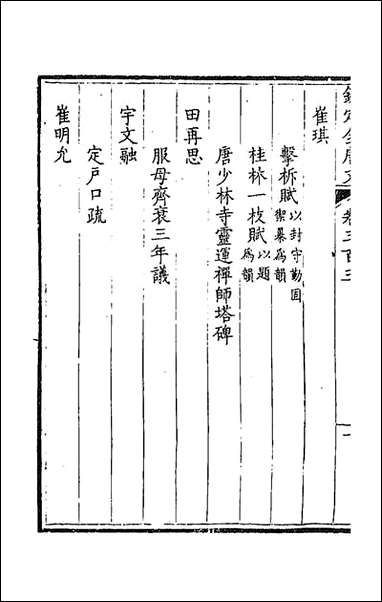 欽定全唐文 卷三百三 一
崔琪
擊柝賦 以封守勤固禦暴為韻
桂林一枝賦 以題為韻
唐少林寺靈運禪師塔碑
田再思
服母齊衰三年議
宇文融
定戶口疏
崔明允